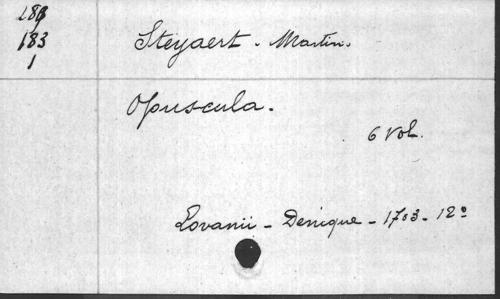 183
1
Steyaert - Martin.
Opuscula.
6 vol.
Lovanii - Denique - 1703 - 12°